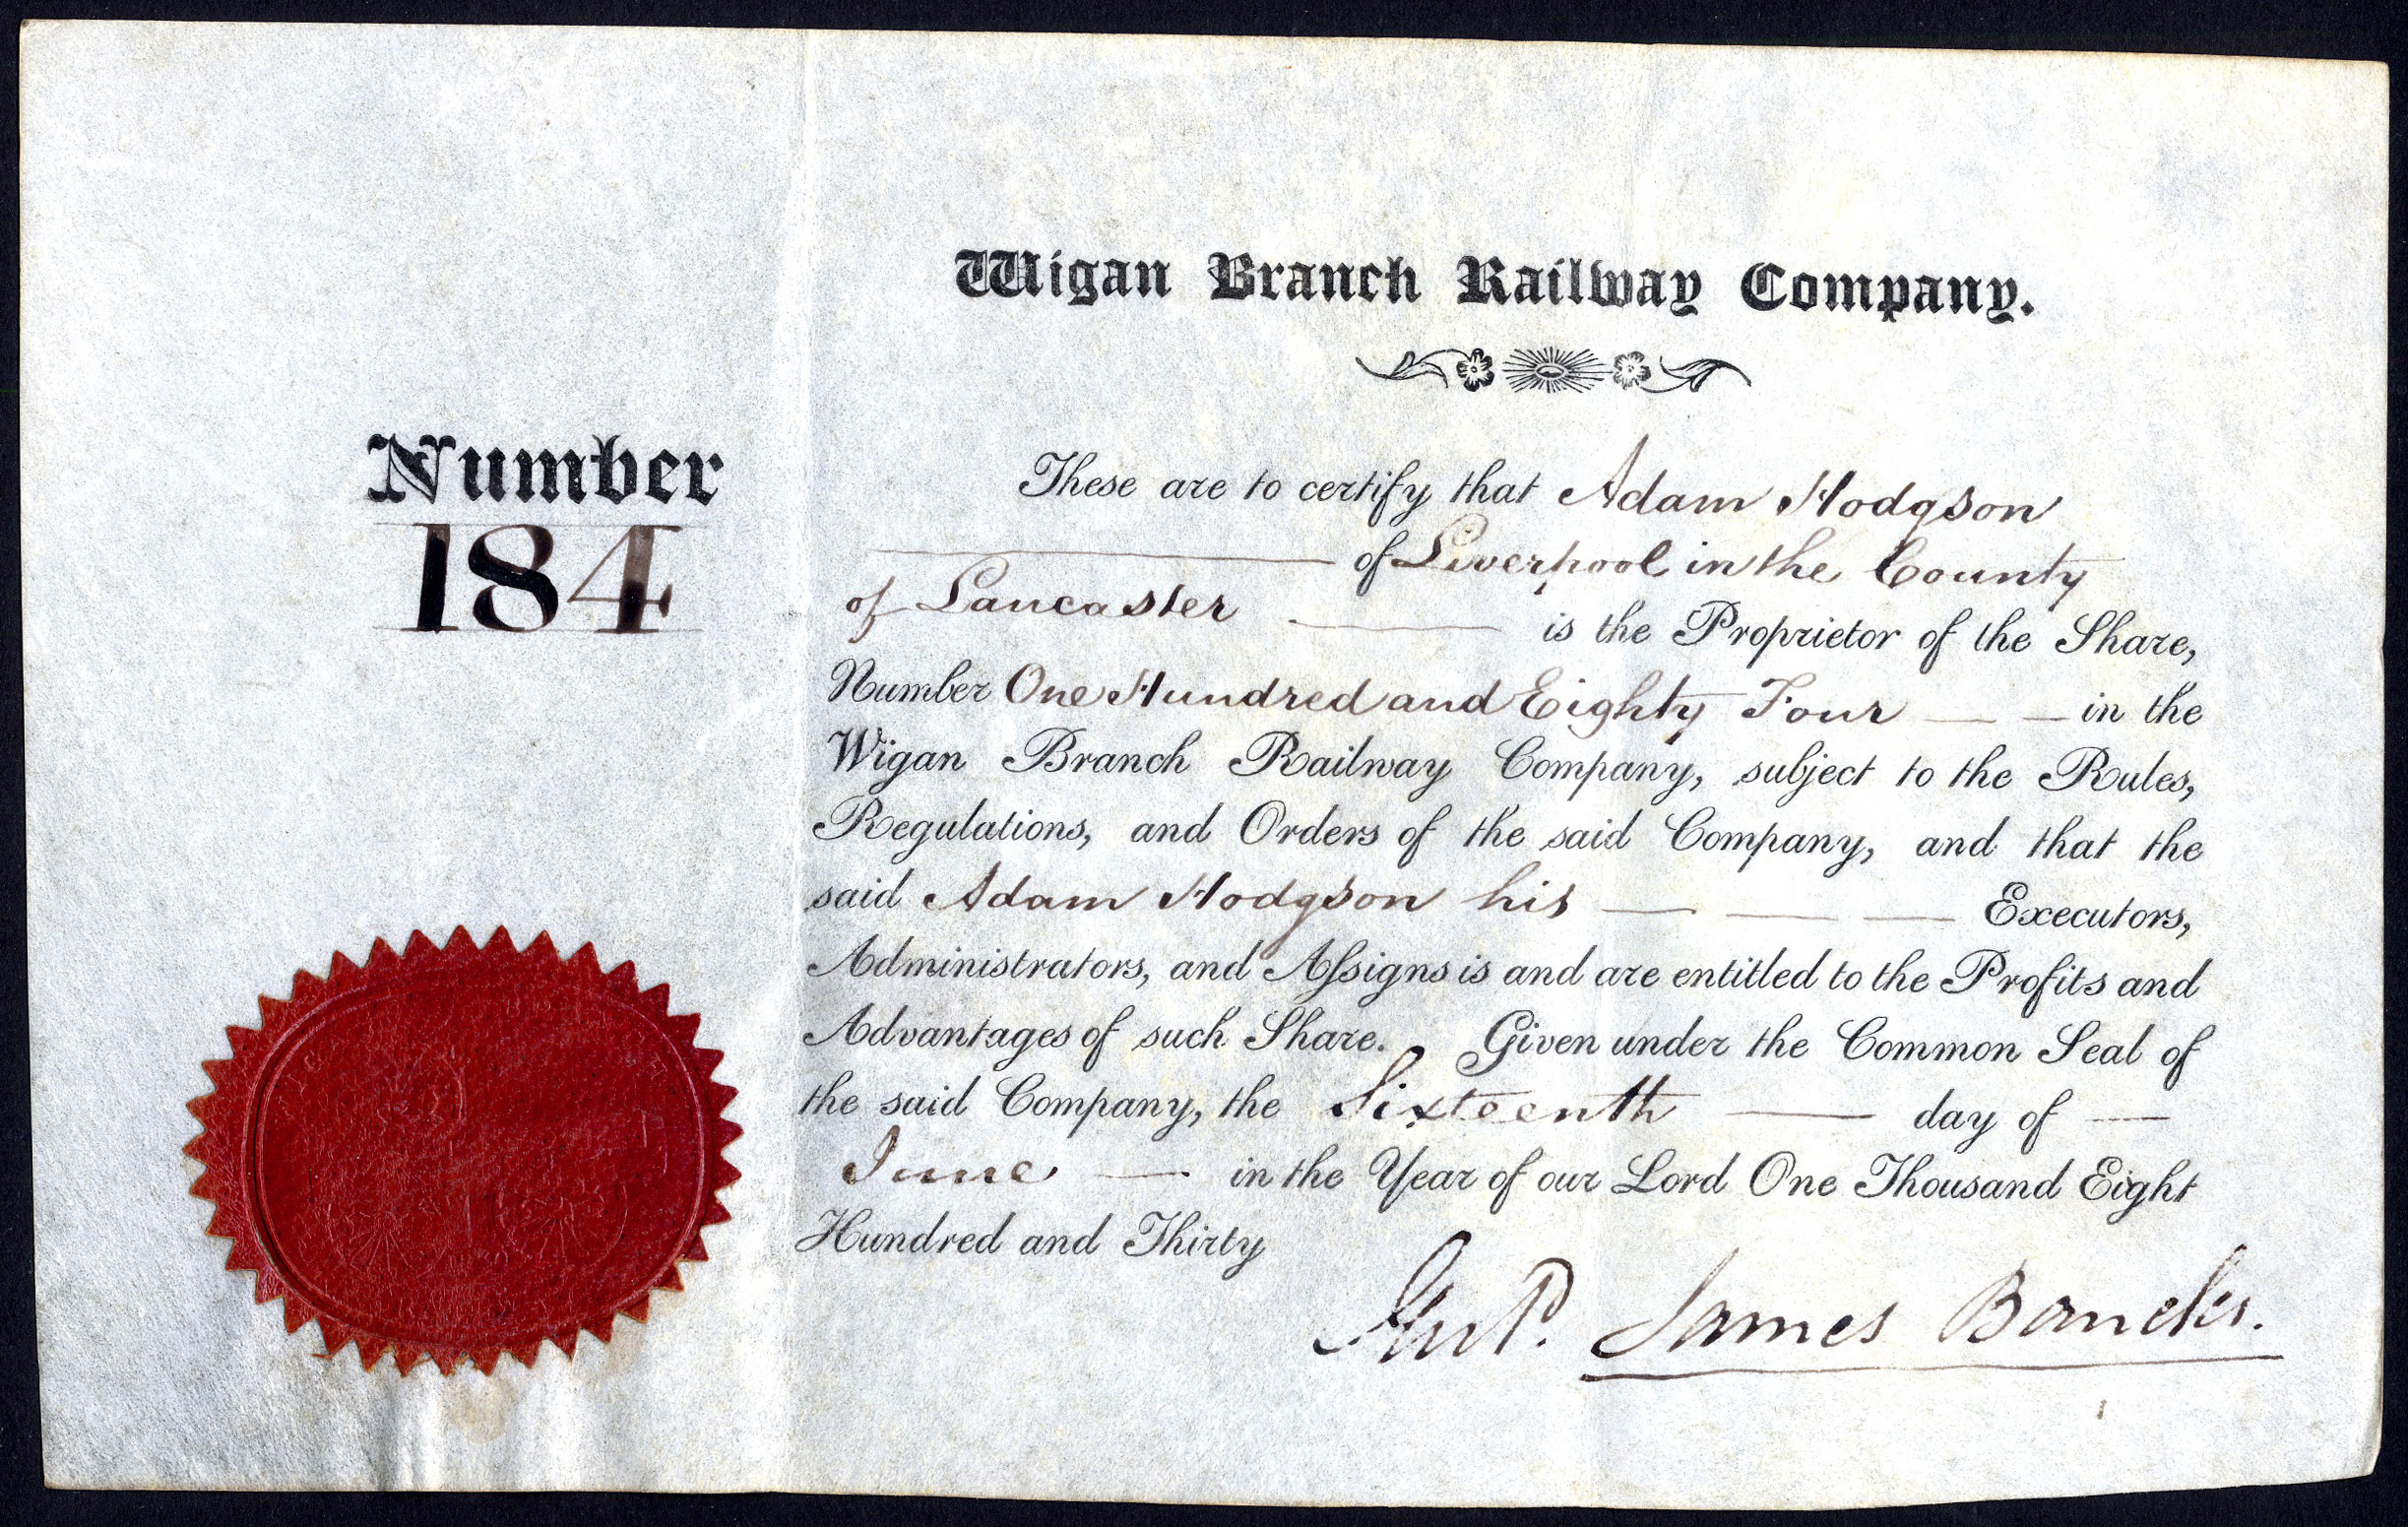 Wigan Branch Railway Company.
Number
184
These are to certify that Adam Hodgson
of Liverpool in the County
of Lancaster is the Proprietor of the Share,
Number One Hundred and Eighty Four in the
Wigan Branch Railway Company, subject to the Rules,
Regulations, and Orders of the said Company, and that the
said Adam Hodgson his Executors,
Administrators, and Aſsigns is and are entitled to the Profits and
Advantages of such Share. Given under the Common Seal of
the said Company, the Sixteenth day of
June in the Year of our Lord One Thousand Eight
Hundred and Thirty
James Bancks.